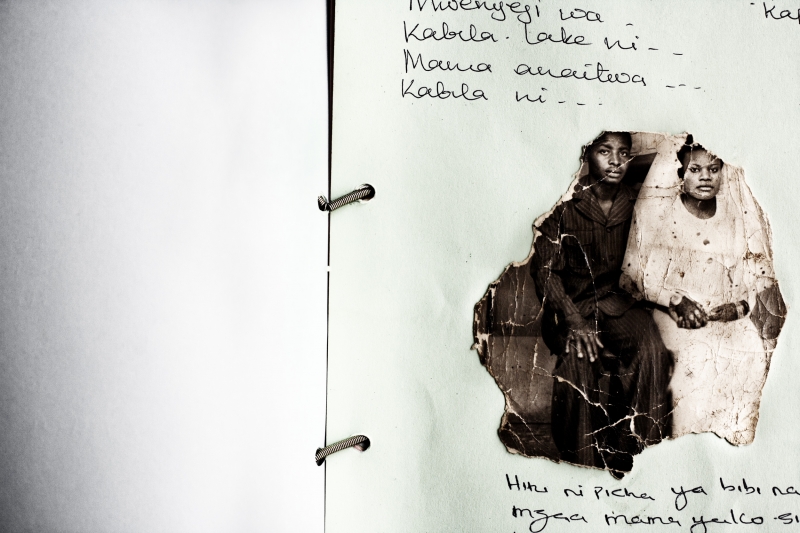 Mwenyegi wa -
Kabila. lake ni - -
Mama anaitwa - - -
Kabila ni - - -
Hii ni picha ya bibi na
mama yuko si